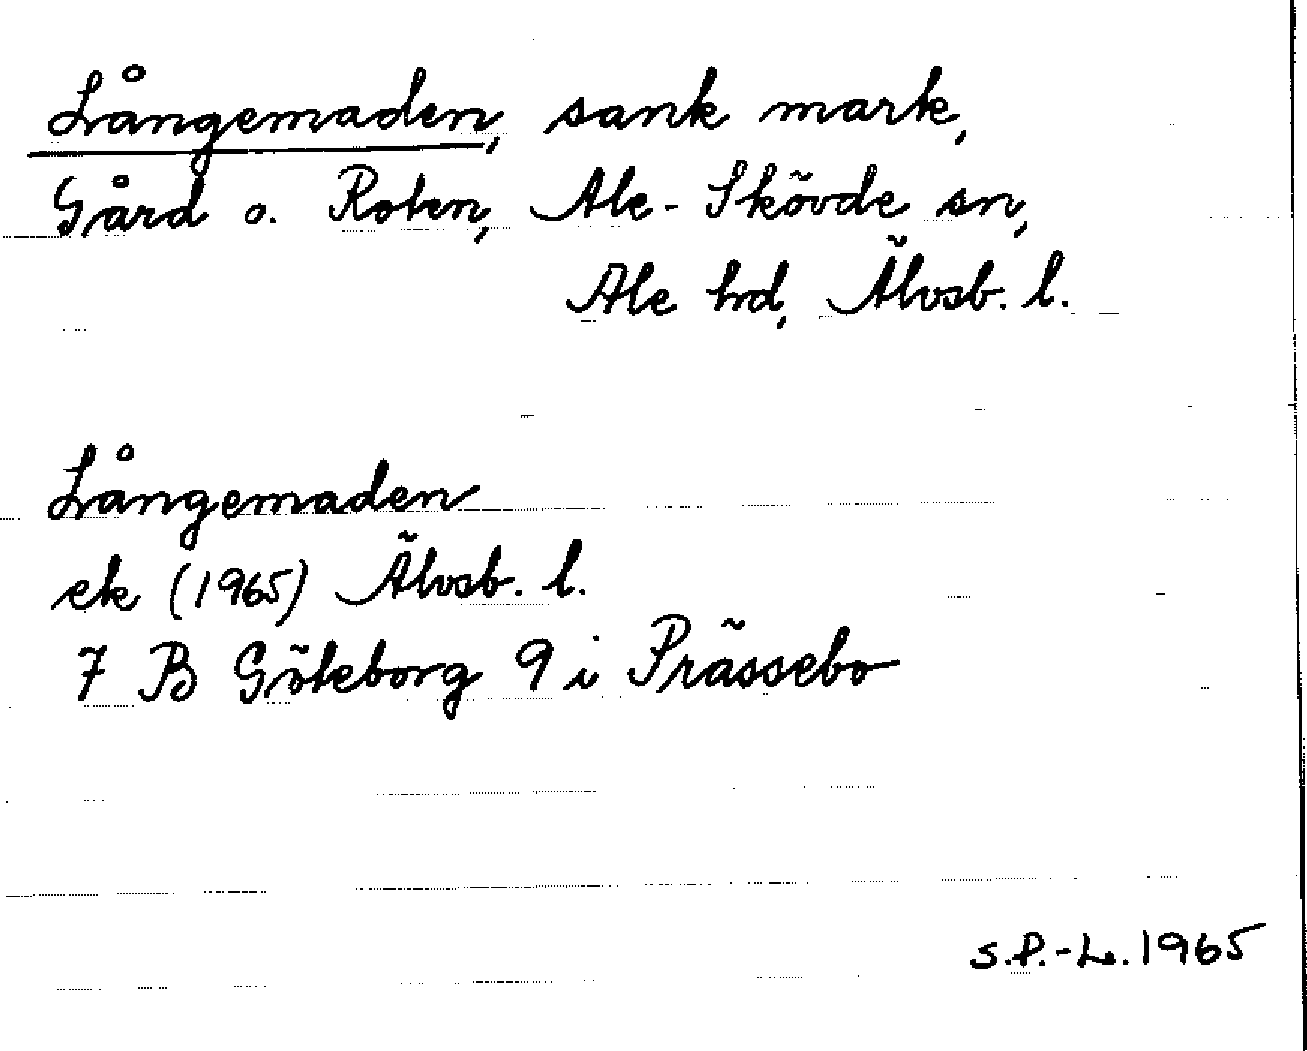 Långemaden, sank mark,
Gård o. Roten, Ale-Skövde sn,
Ale hd, Älvsb. l.
Långemaden
ek (1965) Älvsb. l.
7 B Göteborg 9 i Prässebo
S.P.-L. 1965